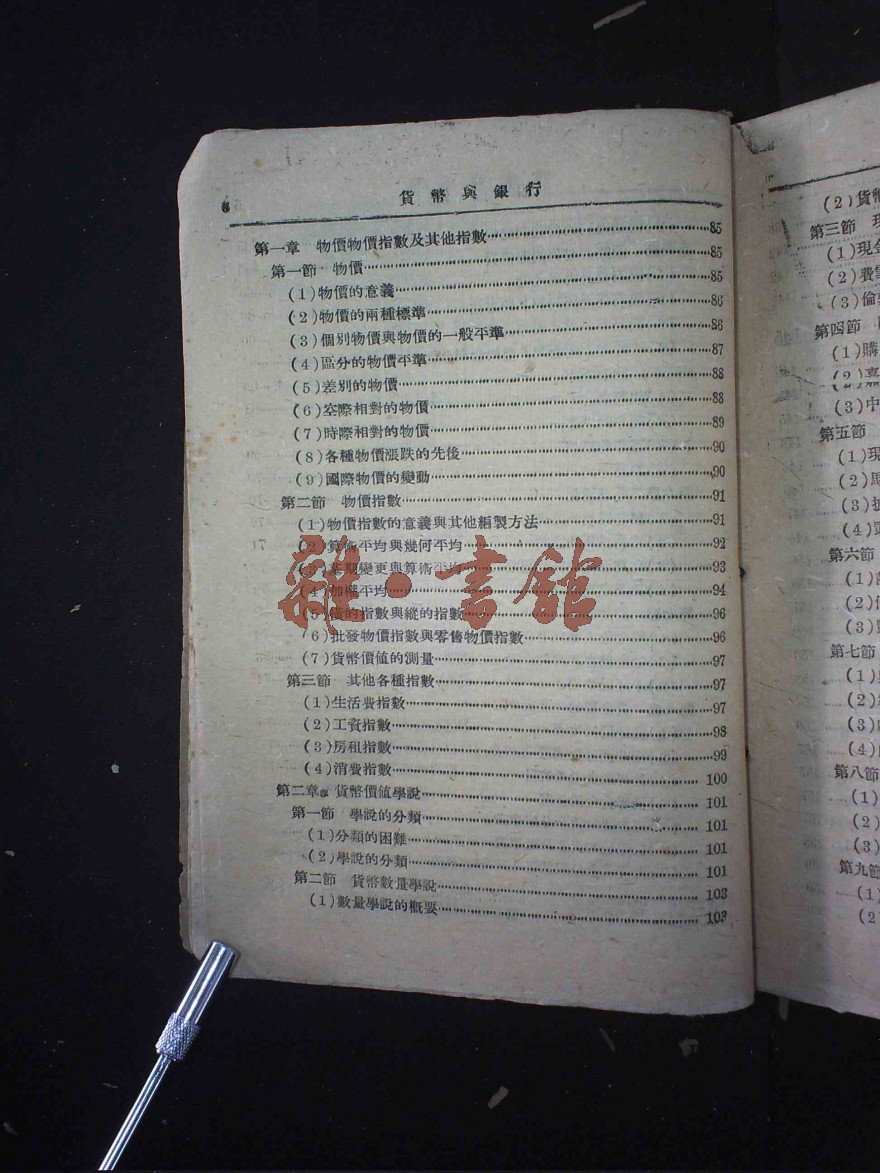 6
貨幣與銀行
第一章 物價物價指數及其他指數……85
第一節 物價……85
(1)物價的意義……85
(2)物價的兩種標準……86
(3)個別物價與物價的一般平準……86
(4)區分的物價平準……87
(5)差別的物價……88
(6)空際相對的物價……88
(7)時際相對的物價……89
(8)各種物價漲跌的先後……90
(9)國際物價的變動……90
第二節 物價指數……91
(1)物價指數的意義與其他編製方法……91
(2)算術平均與幾何平均……92
(3)基期變更與算術平均……93
(4)加權平均……94
(5)橫的指數與縱的指數……96
(6)批發物價指數與零售物價指數……96
(7)貨幣價值的測量……97
第三節 其他各種指數……97
(1)生活費指數……97
(2)工資指數……98
(3)房租指數……99
(4)消費指數……100
第二章 貨幣價值學說……101
第一節 學說的分類……101
(1)分類的困難……101
(2)學說的分類……101
第二節 貨幣數量學說……103
(1)數量學說的概要……103
雜·書館
(2)貨幣
第三節 現
(1)現金
(2)費
(3)倫
第四節
(1)購
(3)中
第五節
(1)現
(2)馬
(3)
(4)
第六節
(1)
(2)
(3)
第七節
(1)
(2)
(3)
(4)
第八節
(1)
(2)
(3)
第九節
(1)
(2